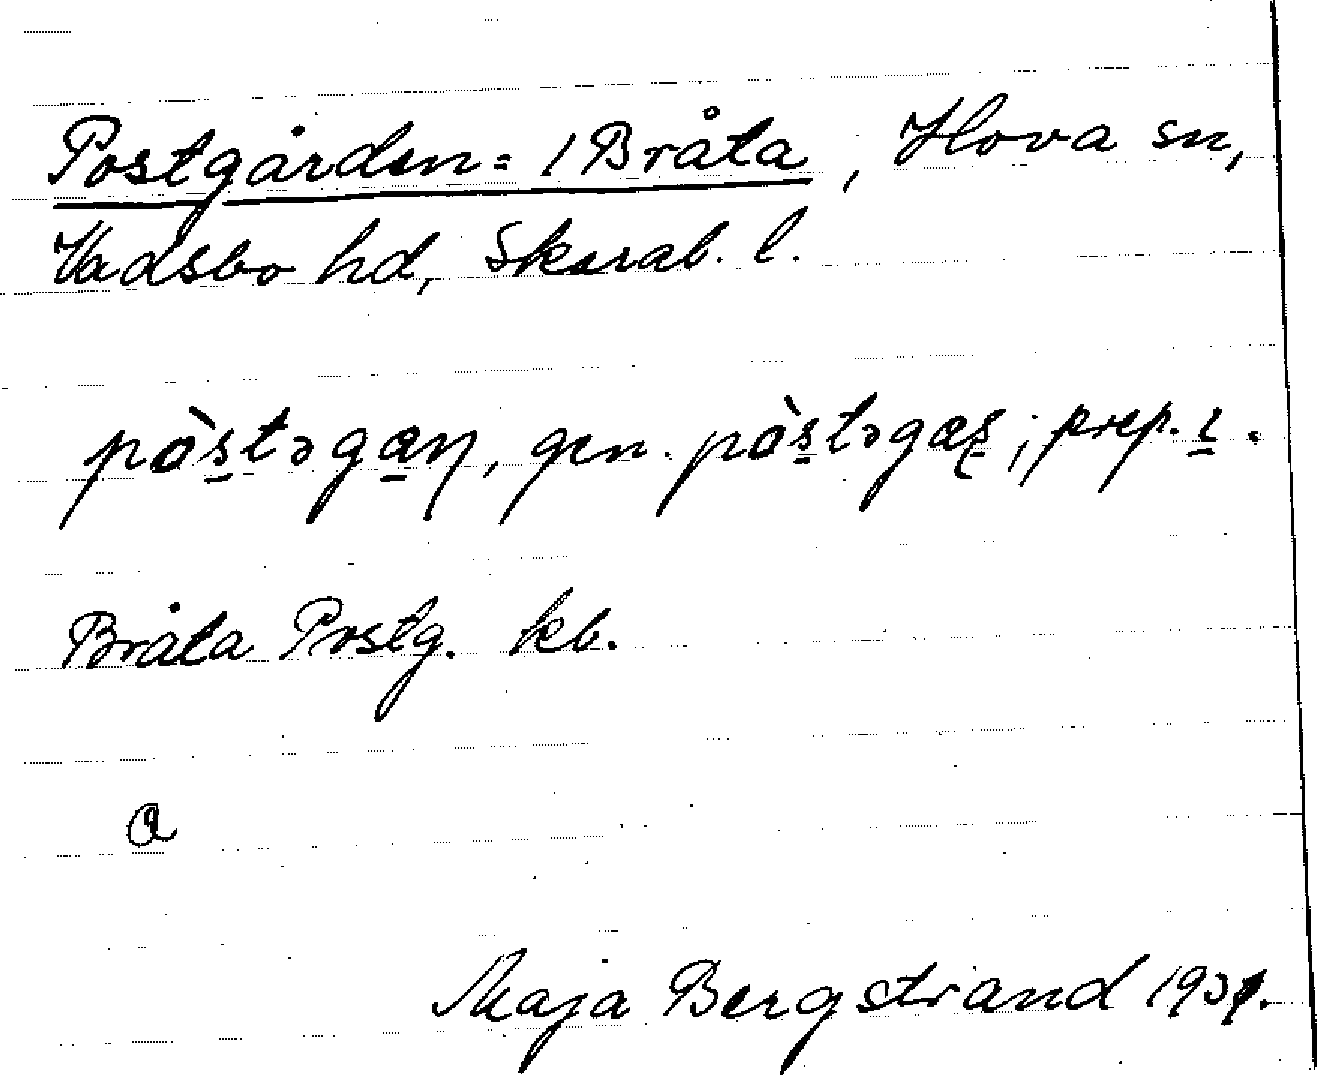 Postgården = 1 Bråta, Hova sn,
Vadsbo hd, Skarab. l.
pòstəgan, gen. pòstəgas; prep. i.
Bråta Postg. kb.
a
Maja Bergstrand